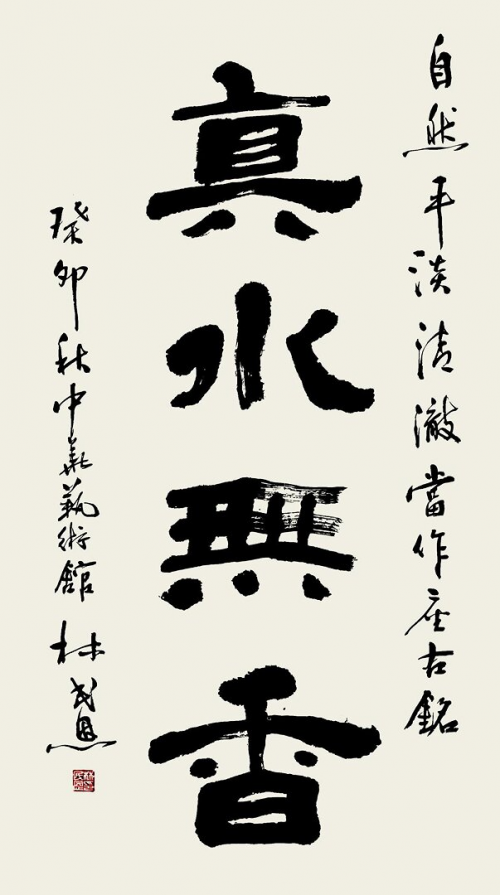 自然平淡清澈當作座右銘
真水無香
癸卯秋中華藝術館 林恩